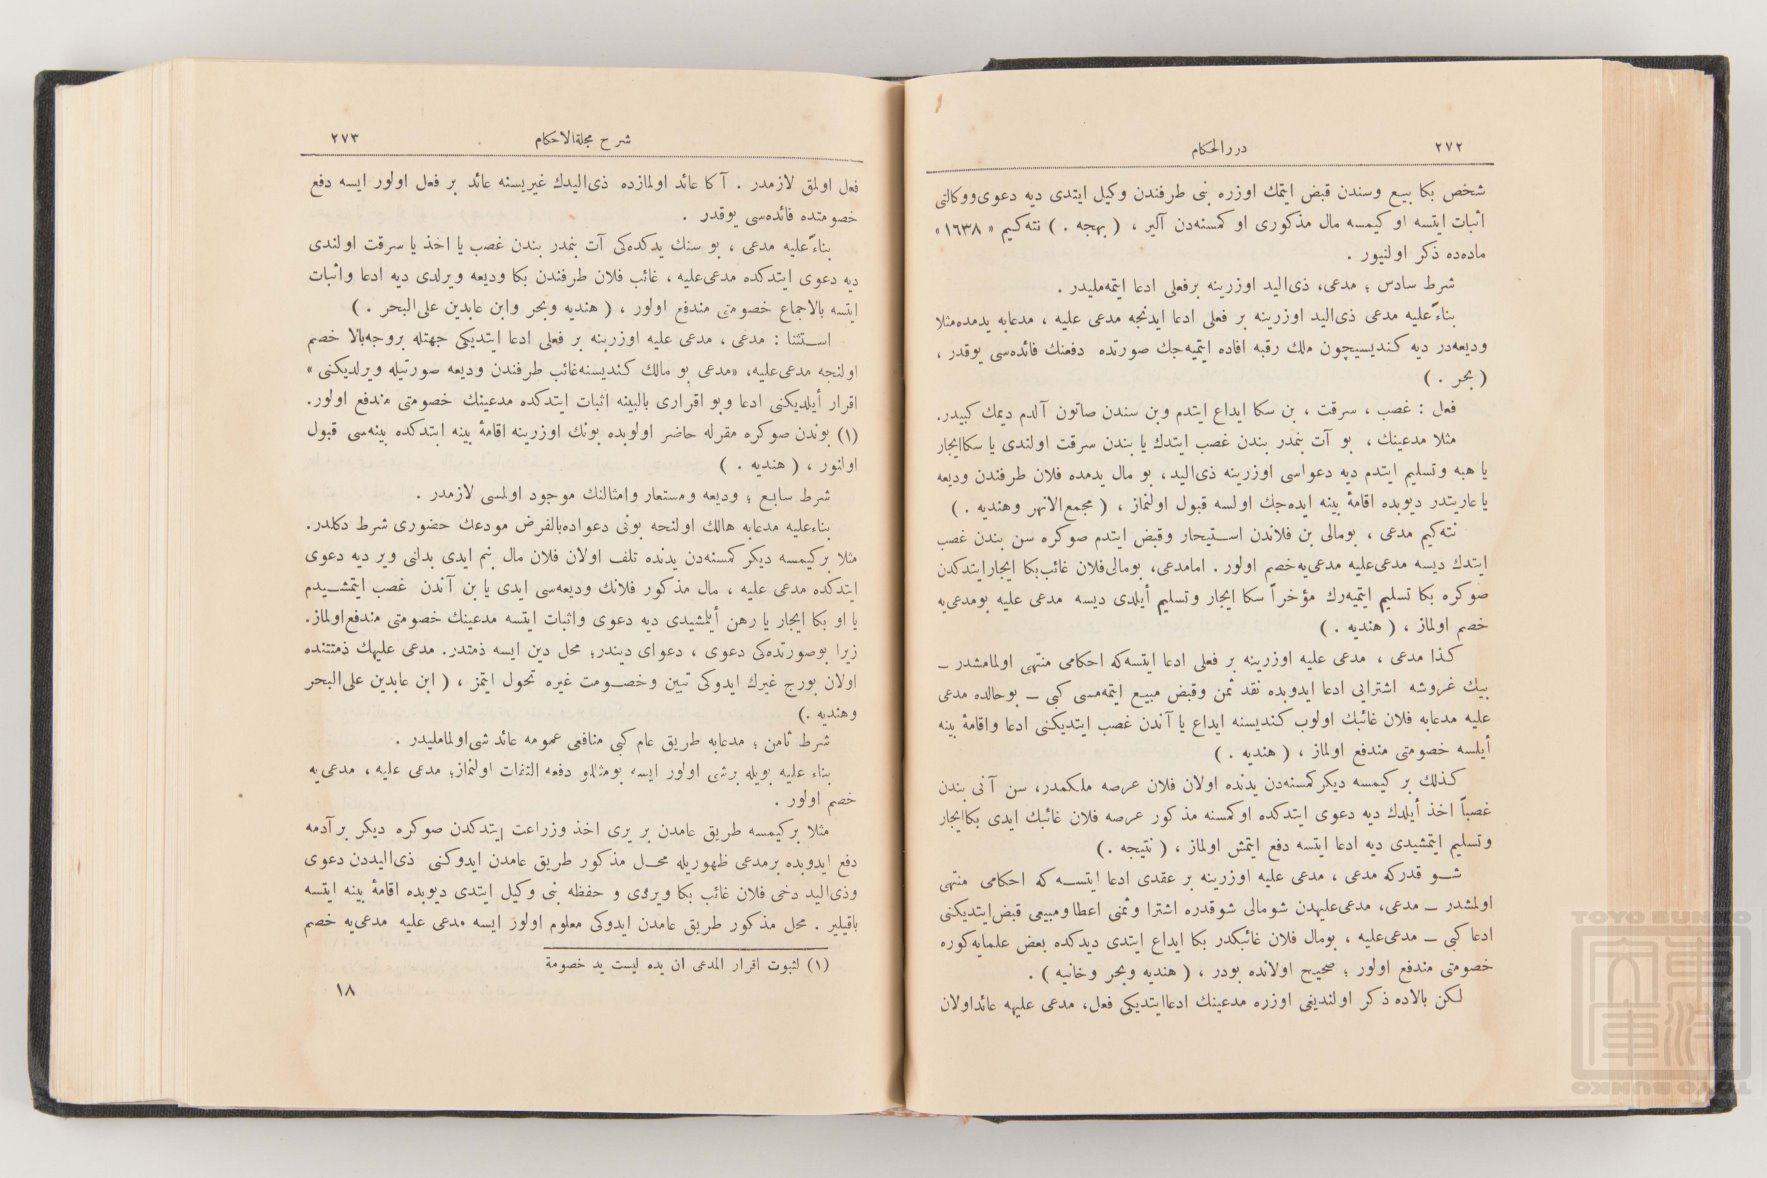 ٢٧٢
دررالحكام
شخص بكا بيع وسندن قبض ايتمك اوزره بنى طرفندن وكيل ايتدى ديه دعوى‌ووكالتى
اثبات ايتسه او كيمسه مال مذكورى او كمسنه‌دن آلير ، ( بهجه . ) نته‌كيم « ١٦٣٨ »
ماده‌ده ذكر اولنيور .
شرط سادس ؛ مدعى، ذى‌اليد اوزرينه برفعلى ادعا ايتمه‌مليدر .
بناءً‌عليه مدعى ذى‌اليد اوزرينه بر فعلى ادعا ايدنجه مدعى عليه ، مدعابه يدمده‌مثلا
وديعه‌در ديه كنديسيچون ملك رقبه افاده ايتميه‌جك صورتده دفعنك فائده‌سى يوقدر ،
( بحر . )
فعل : غصب ، سرقت ، بن سكا ايداع ايتدم وبن سندن صاتون آلدم ديمك كبيدر.
مثلا مدعينك ، بو آت بنمدر بندن غصب ايتدك يا بندن سرقت اولندى يا سكاايجار
يا هبه وتسليم ايتدم ديه دعواسى اوزرينه ذى‌اليد، بو مال يدمده فلان طرفندن وديعه
يا عاريتدر ديوبده اقامهٔ بينه ايده‌جك اولسه قبول اولنماز ، ( مجمع‌الانهر وهنديه . )
نته‌كيم مدعى ، بومالى بن فلاندن استيجار وقبض ايتدم صوكره سن بندن غصب
ايتدك ديسه مدعى‌عليه مدعى‌يه‌خصم اولور . امامدعى، بومالى‌فلان غائب‌بكا ايجارايتدكدن
صوكره بكا تسليم ايتميه‌رك مؤخراً سكا ايجار وتسليم أيلدى ديسه مدعى عليه بومدعى‌يه
خصم اولماز ، ( هنديه . )
كذا مدعى ، مدعى عليه اوزرينه بر فعلى ادعا ايتسه‌كه احكامى منتهى اولمامشدر ــ
بيك غروشه اشترايى ادعا ايدوبده نقد ثمن وقبض مبيع ايتمه‌مسى كبى ــ بوحالده مدعى
عليه مدعابه فلان غائبك اولوب كنديسنه ايداع يا آندن غصب ايتديكنى ادعا واقامهٔ بينه
أيلسه خصومتى مندفع اولماز ، ( هنديه . )
كذلك بر كيمسه ديكر كمسنه‌دن يدنده اولان فلان عرصه ملكمدر، سن آنى بندن
غصباً اخذ أيلدك ديه دعوى ايتدكده اوكمسنه مذكور عرصه فلان غائبك ايدى بكاايجار
وتسليم ايتمشيدى ديه ادعا ايتسه دفع ايتمش اولماز ، ( نتيجه . )
شو قدركه مدعى ، مدعى عليه اوزرينه بر عقدى ادعا ايتسه كه احكامى منتهى
اولمشدر ــ مدعى، مدعى‌عليهدن شومالى شوقدره اشترا وثمنى اعطا ومبيعى قبض‌ايتديكنى
ادعا كبى ــ مدعى‌عليه ، بومال فلان غائبكدر بكا ايداع ايتدى ديدكده بعض علمايه‌كوره
خصومتى مندفع اولور ؛ صحيح اولانده بودر ، ( هنديه وبحر وخانيه ) .
لكن بالاده ذكر اولنديغى اوزره مدعينك ادعاايتديكى فعل، مدعى عليهه عائداولان
٢٧٣
شرح مجلةالاحكام
فعل اولمق لازمدر . آكا عائد اولمازده ذى‌اليدك غيريسنه عائد بر فعل اولور ايسه دفع
خصومتده فائده‌سى يوقدر .
بناءً‌عليه مدعى ، بو سنك يدكده‌كى آت بنمدر بندن غصب يا اخذ يا سرقت اولندى
ديه دعوى ايتدكده مدعى‌عليه ، غائب فلان طرفندن بكا وديعه ويرلدى ديه ادعا واثبات
ايتسه بالاجماع خصومتى مندفع اولور ، ( هنديه وبحر وابن عابدين على‌البحر . )
استثنا : مدعى ، مدعى عليه اوزرينه بر فعلى ادعا ايتديكى جهتله بروجه‌بالا خصم
اولنجه مدعى‌عليه، «مدعى بو مالك كنديسنه‌غائب طرفندن وديعه صورتيله ويرلديكنى»
اقرار أيلديكنى ادعا وبو اقرارى بالبينه اثبات ايتدكده مدعينك خصومتى مندفع اولور.
(١) بوندن صوكره مقرله حاضر اولوبده بونك اوزرينه اقامهٔ بينه ايتدكده بينه‌سى قبول
اولنور ، ( هنديه . )
شرط سابع ؛ وديعه ومستعار وامثالنك موجود اولمسى لازمدر .
بناءعليه مدعابه هالك اولنجه بونى دعواده‌بالفرض مودعك حضورى شرط دكلدر.
مثلا بركيمسه ديكر كمسنه‌دن يدنده تلف اولان فلان مال بنم ايدى بدلنى وير ديه دعوى
ايتدكده مدعى عليه ، مال مذكور فلانك وديعه‌سى ايدى يا بن آندن غصب ايتمشيدم
يا او بكا ايجار يا رهن أيلمشيدى ديه دعوى واثبات ايتسه مدعينك خصومتى مندفع‌اولماز.
زيرا بوصورتده‌كى دعوى ، دعواى ديندر؛ محل دين ايسه ذمتدر. مدعى عليهك ذمتنده
اولان بورج غيرك ايدوكى تبين وخصومت غيره تحول ايتمز ، ( ابن عابدين على‌البحر
وهنديه .)
شرط ثامن ؛ مدعابه طريق عام كبى منافعى عمومه عائد شى‌اولمامليدر .
بناء عليه بويله برشى اولور ايسه بومثللو دفعه التفات اولنماز؛ مدعى عليه ، مدعى‌يه
خصم اولور .
مثلا بركيمسه طريق عامدن بر يرى اخذ وزراعت ايتدكدن صوكره ديكر برآدمه
دفع ايدوبده برمدعى ظهوريله محل مذكور طريق عامدن ايدوكنى ذى‌اليددن دعوى
وذى‌اليد دخى فلان غائب بكا ويردى و حفظه بنى وكيل ايتدى ديوبده اقامهٔ بينه ايتسه
باقيلير . محل مذكور طريق عامدن ايدوكى معلوم اولور ايسه مدعى عليه مدعى‌يه خصم
(١) لثبوت اقرار المدعى ان يده ليست يد خصومة
١٨
TOYO BUNKO
東洋文庫
TOYO BUNKO